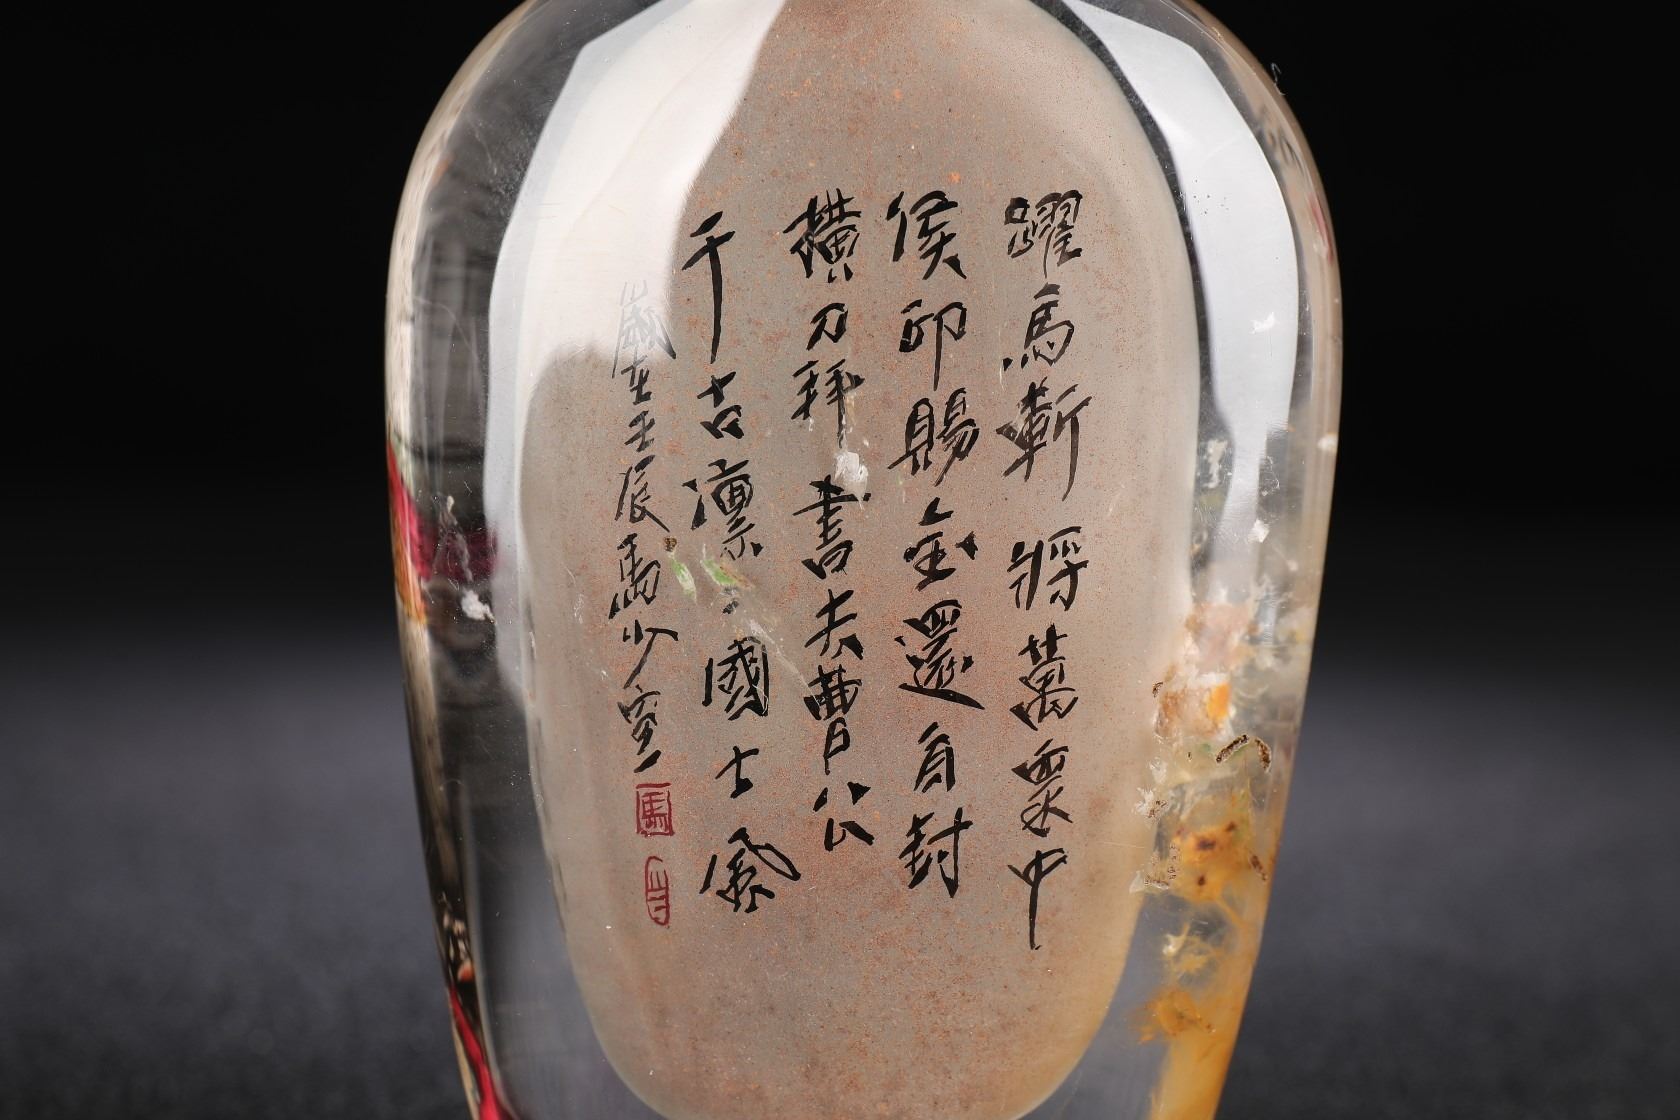 躍馬斬將萬衆中
侯印賜金還自封
橫刀拜書去曹公
千古凛〻國士風
歲在壬辰馬少宣